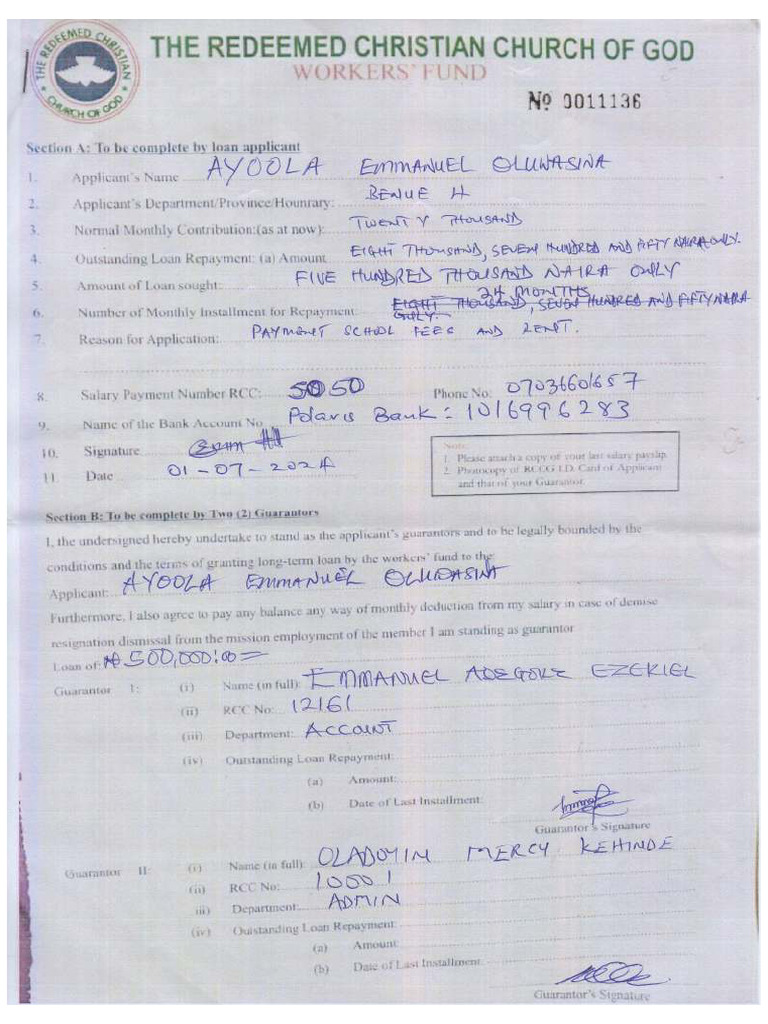 THE REDEEMED CHRISTIAN CHURCH OF GOD
THE REDEEMED CHRISTIAN
CHURCH OF GOD
WORKERS' FUND
No 0011136
Section A: To be complete by loan applicant
1. Applicant's Name AYOOLA EMMANUEL OLUWASINA
2. Applicant's Department/Province/Hounrary: BENUE H
3. Normal Monthly Contribution:(as at now): TWENTY THOUSAND
4. Outstanding Loan Repayment: (a) Amount EIGHT THOUSAND, SEVEN HUNDRED AND FIFTY NAIRA ONLY.
5. Amount of Loan sought: FIVE HUNDRED THOUSAND NAIRA ONLY
24 MONTHS
6. Number of Monthly Installment for Repayment: EIGHT THOUSAND, SEVEN HUNDRED AND FIFTY NAIRA
ONLY.
7. Reason for Application: PAYMENT SCHOOL FEES AND RENT.
8. Salary Payment Number RCC: 5050 Phone No: 07036601657
9. Name of the Bank Account No Polaris Bank: 1016996283
10. Signature
11. Date 01-07-2024
Note:
1. Please attach a copy of your last salary payslip.
2. Photocopy of RCCG I.D. Card of Applicant
and that of your Guarantor.
Section B: To be complete by Two (2) Guarantors
I, the undersigned hereby undertake to stand as the applicant's guarantors and to be legally bounded by the
conditions and the terms of granting long-term loan by the workers' fund to the:
Applicant: AYOOLA EMMANUEL OLUWASINA
Furthermore, I also agree to pay any balance any way of monthly deduction from my salary in case of demise
resignation dismissal from the mission employment of the member I am standing as guarantor
Loan of: ₦500,000:00=
Guarantor I: (i) Name (in full): EMMANUEL ADEGOKE EZEKIEL
(ii) RCC No: 12161
(iii) Department: ACCOUNT
(iv) Outstanding Loan Repayment:
(a) Amount:
(b) Date of Last Installment:
Guarantor's Signature
Guarantor II: (i) Name (in full): OLADOYIN MERCY KEHINDE
(ii) RCC No: 10001
iii) Department: ADMIN
(iv) Outstanding Loan Repayment:
(a) Amount:
(b) Date of Last Installment:
Guarantor's Signature